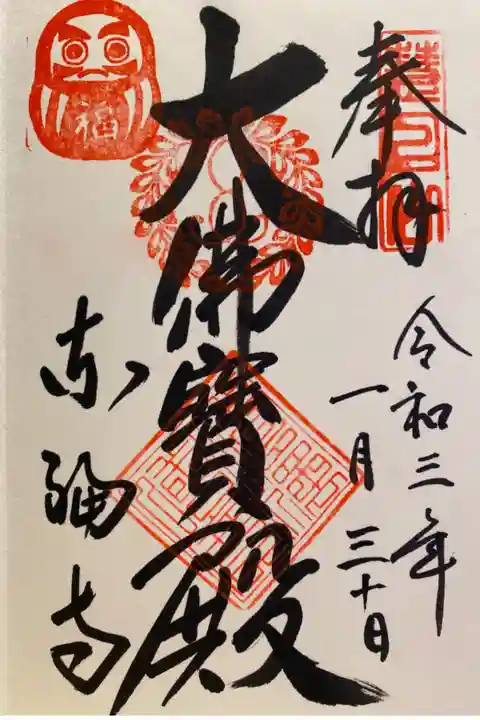 奉拝
令和三年
一月三十日
大佛寶殿
福